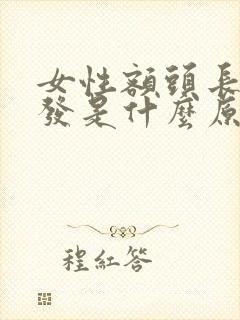 女性額頭長
發是什麼原
程紅答